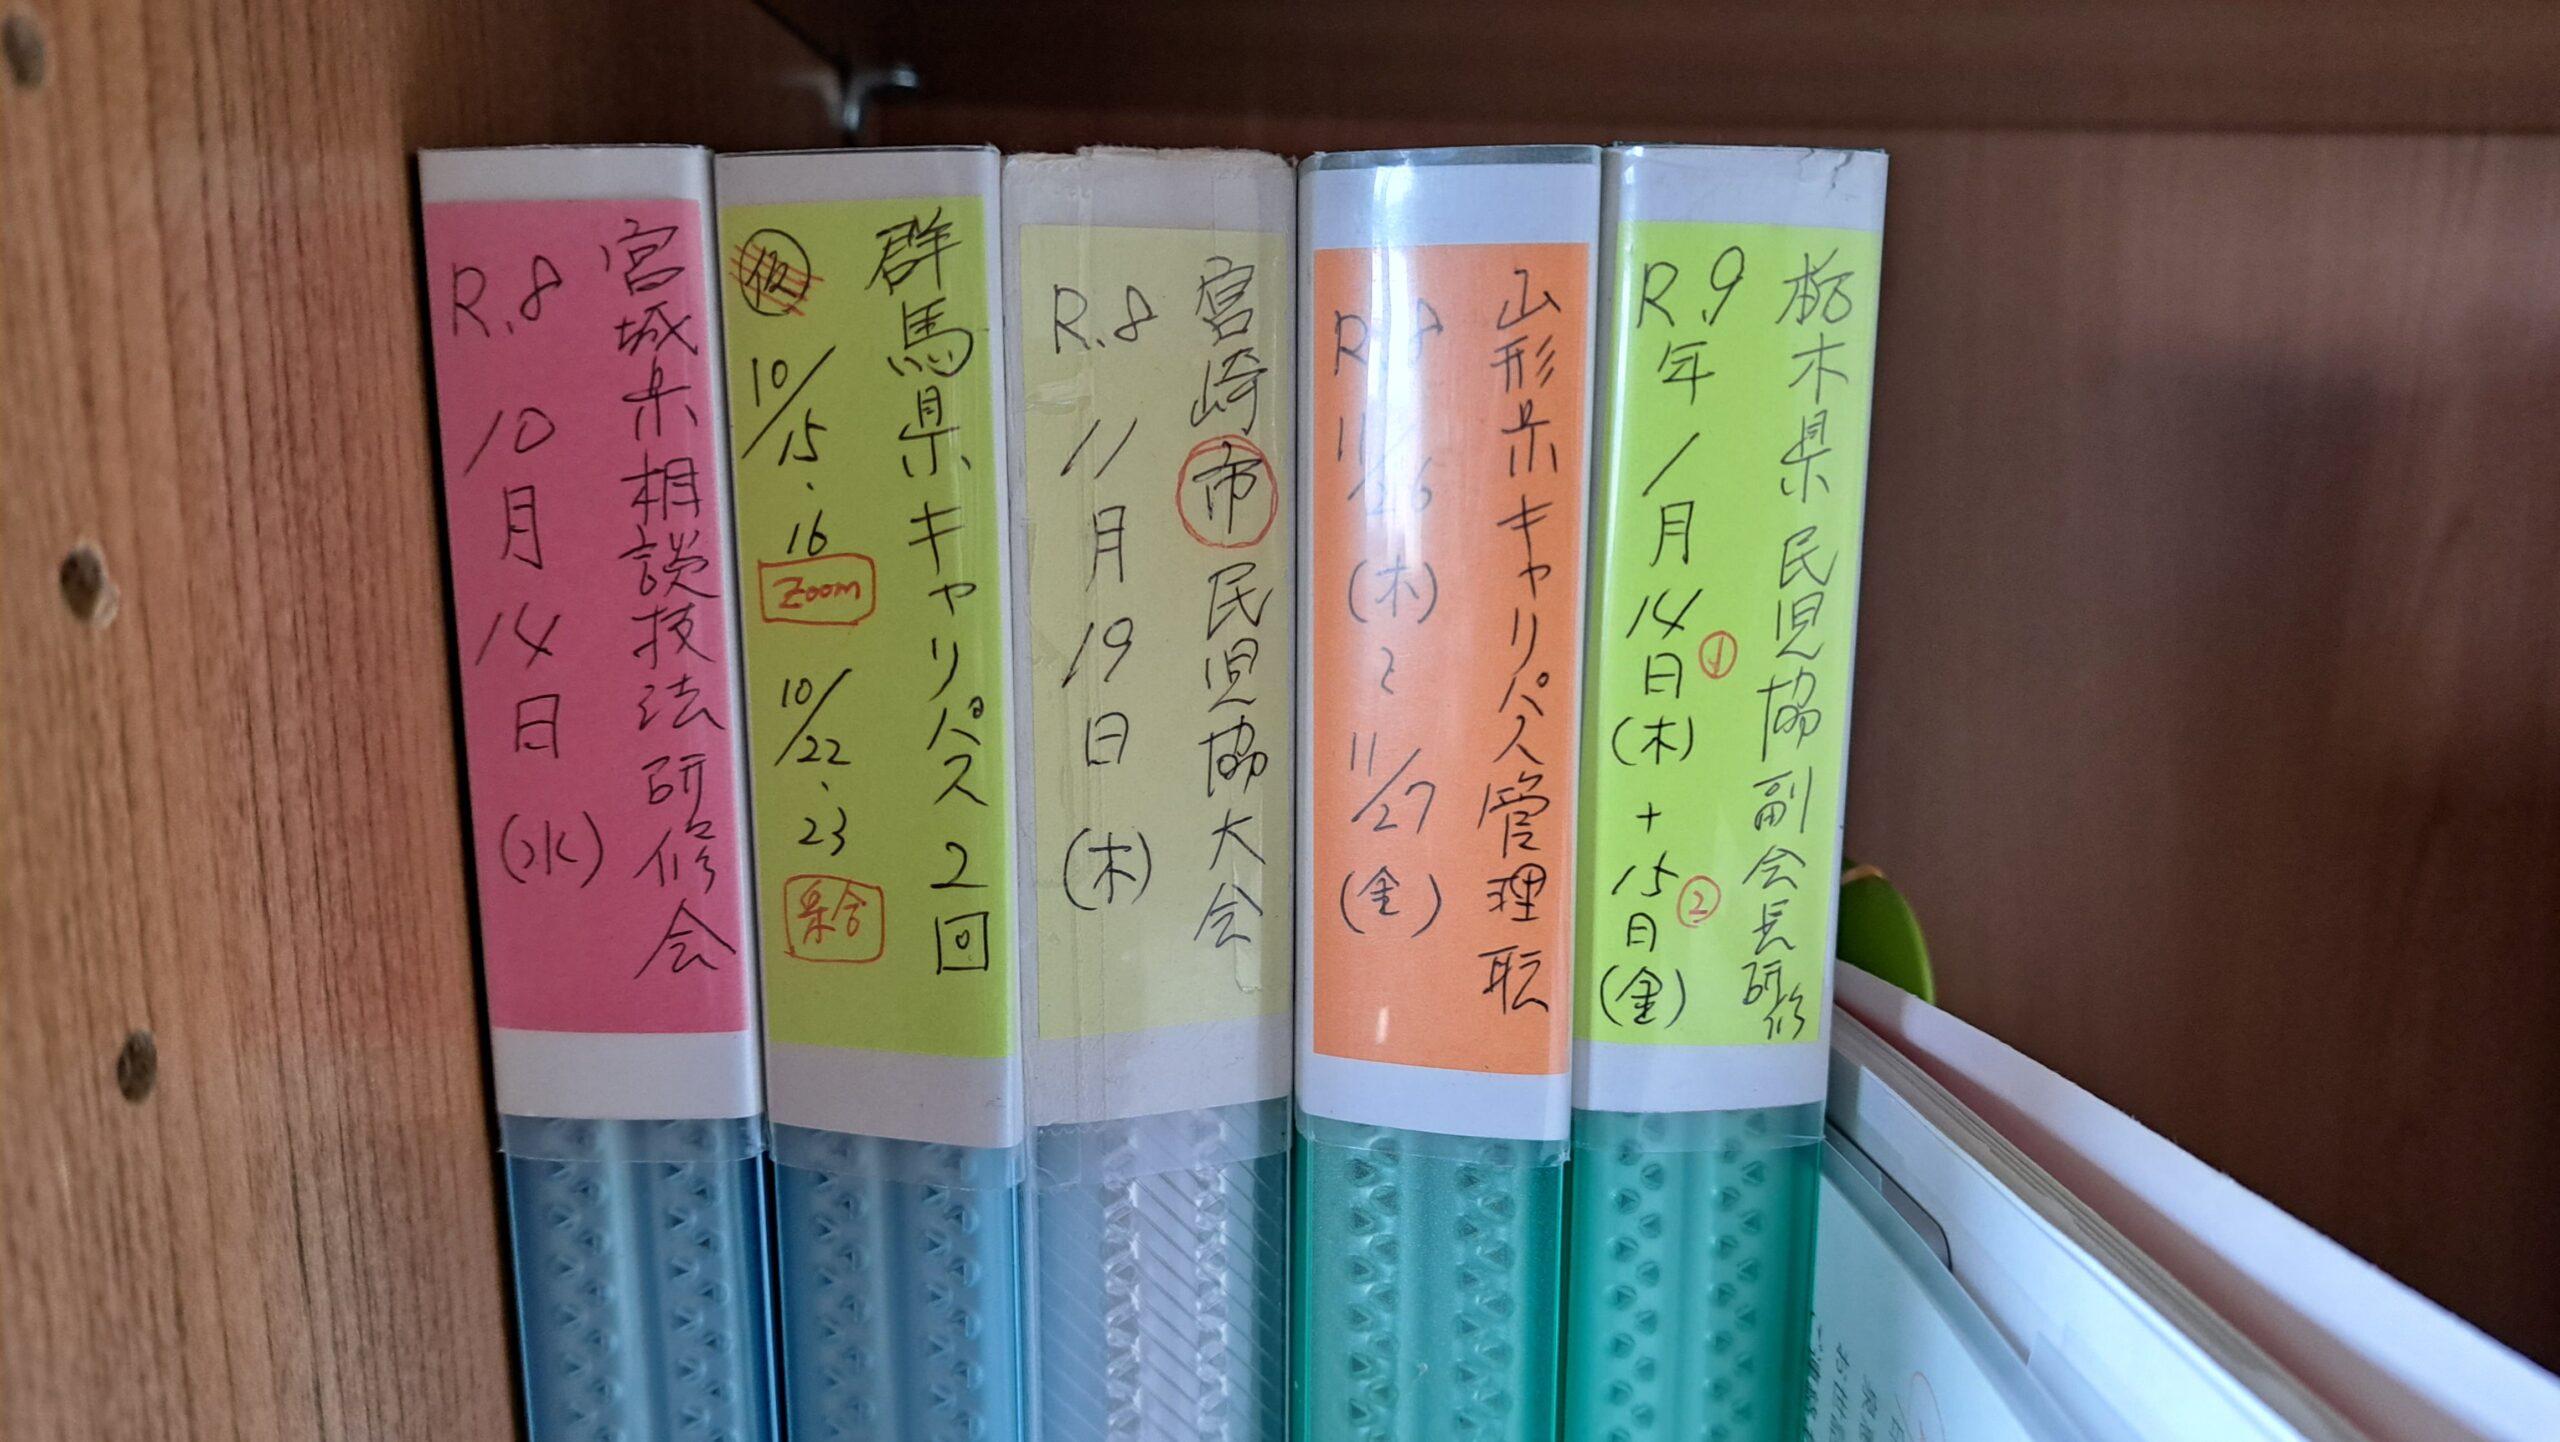 宮城県相談技法研修会
R.8
10月14日(水)
群馬県キャリパス2回
仮
10/15.16
Zoom
10/22.23
集合
宮崎市民児協大会
R.8
11月19日(木)
山形県キャリパス管理職
R.8
11/26(木)と
11/27(金)
栃木県民児協副会長研修
R.9年
1月14日(木)①
+
15日(金)②